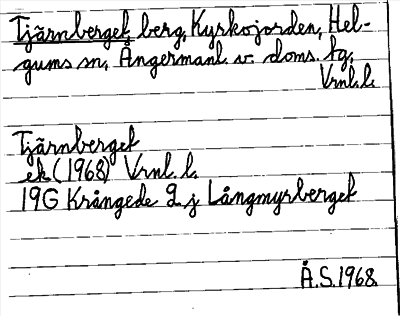 Tjärnberget, berg, Kyrkojorden, Hel-
gums sn, Ångermanl. v. doms. tg,
Vrnl. l.
Tjärnberget
ek (1968) Vrnl. l.
19G Krångede 9 j Långmyrberget
Å.S. 1968